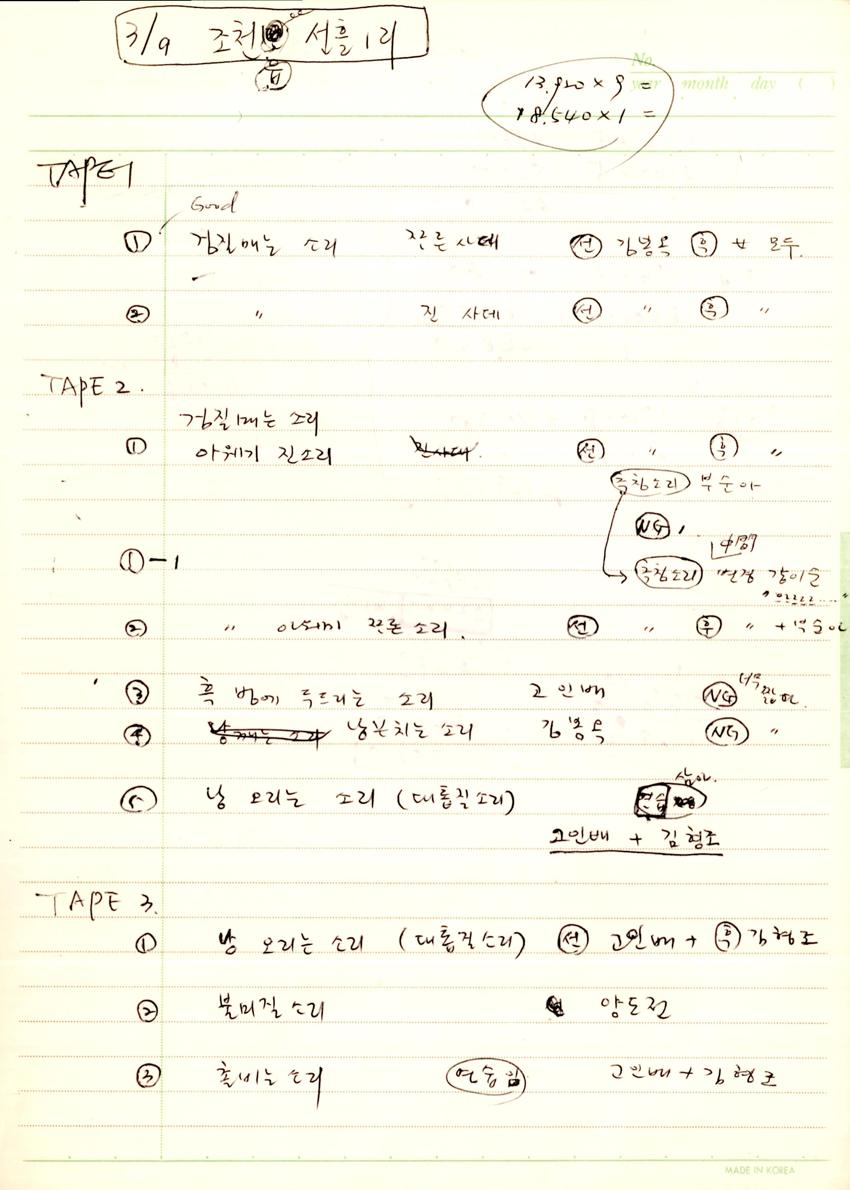 3/9 조천읍 선흘1리
No.
year month day ( )
13,920 × 9 =
18,540 × 1 =
TAPE1
Good
① 검질매는 소리 짠른사데 선 김봉옥 훗 女 모두.
② 〃 진 사데 선 〃 훗 〃
TAPE 2.
검질매는 소리
① 아웨기 진소리 진사데. 선 〃 훗 〃
부순아
NG,
①-1 강이순
② 〃 아웨기 짠른 소리. 선 〃 후 〃 + 부순아
③ 흑 벙에 두드리는 소리 고인배 NG 너무 짧아.
④ 낭깨는 소리 낭분치는 소리 김봉옥 NG 〃
⑤ 낭 오리는 소리 (대톱질소리) 연습 삼아.
고인배 + 김형조
TAPE 3.
① 낭 오리는 소리 (대톱질소리) 선 고인배 + 훗 김형조
② 불미질소리 양도전
③ 촐비는 소리 연습임 고인배 + 김형조
MADE IN KOREA